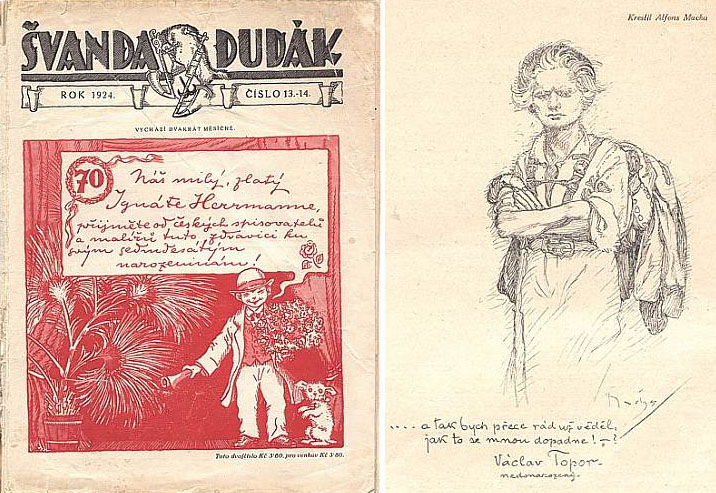 ŠVANDA DUDÁK
ROK 1924.
ČÍSLO 13.-14.
VYCHÁZÍ DVAKRÁT MĚSÍČNĚ.
70
Náš milý, zlatý
Ignáte Herrmanne,
přijměte od českých spisovatelů
a malířů tuto zdravici ku
svým sedmdesátým
narozeninám!
Toto dvojčíslo Kč 3·60, pro venkov Kč 3·80.
Kreslil Alfons Mucha
Mucha
.... a tak bych přece rád už věděl,
jak to se mnou dopadne! – ?
Václav Topor –
nedonarozený.